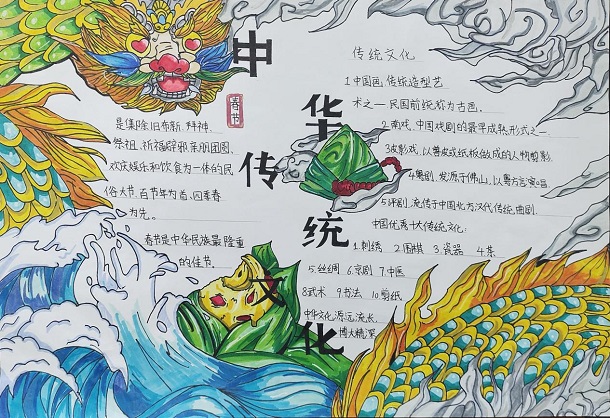 中华传统文化
春节
是集除旧布新、拜神、
祭祖、祈福辟邪、亲朋团圆、
欢庆娱乐和饮食为一体的民
俗大节。百节年为首、四季春
为先。
春节是中华民族最隆重
的佳节。
传统文化
1.中国画,传统造型艺
术之一 民国前统称为古画.
2.南戏、中国戏剧的最早成熟形式之一
3.皮影戏,以兽皮或纸板做成的人物剪影.
4.粤剧,发源于佛山,以粤方言演唱
5.评剧.流传于中国北方汉代传统曲剧.
中国优秀十大传统文化:
1.刺绣 2.围棋 3.瓷器 4.茶
5.丝绸 6.京剧 7.中医
8.武术 9.书法 10.剪纸
中华文化源远流长、
博大精深